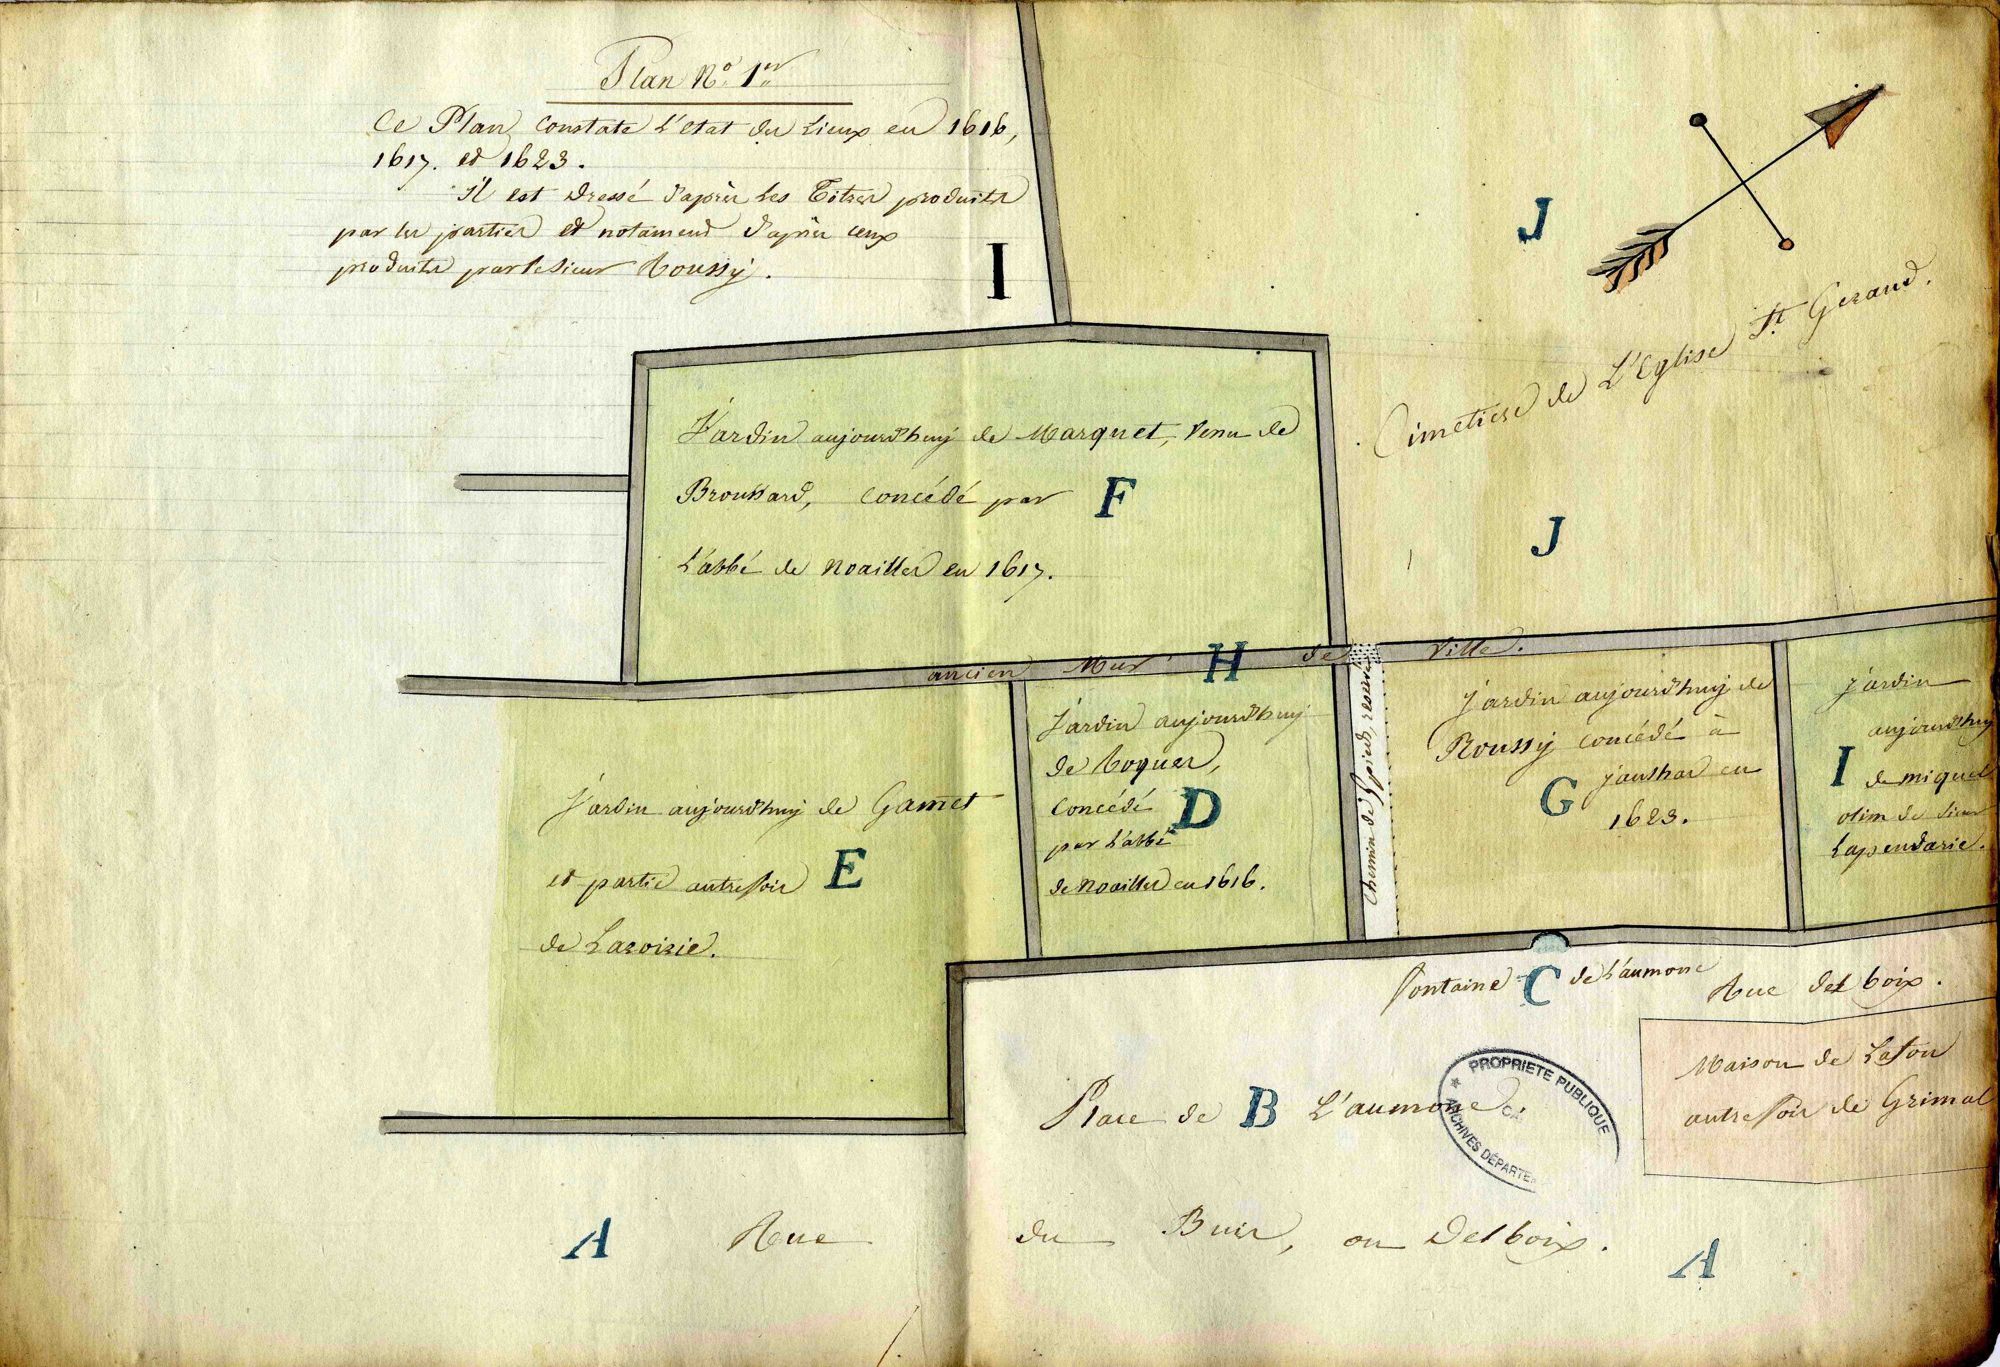 Plan N.º 1.er
Ce Plan, Constate L'etat du Lieux en 1616,
1617. et 1623.
Il est dressé d'après Les Titres produits
par les parties et notament d'après ceux
produits par le Sieur Roussy.
I
J
Cimetiere de L'Eglise St. Geraud.
J
Jardin aujourd'huy de Marquet, venu de
Broussard, Concédé par
F
L'abbé de Noailles en 1617.
ancien Mur H de Ville.
Jardin aujourd'huy de Gamet
et partie autrefois E
de Laroirie.
Jardin aujourd'huy
de Roques,
Concédé D
par L'abbé
de Noailles en 1616.
Chemin de 5 pieds, reservé
Jardin aujourd'huy de
Roussy Concédé à
G
en
1623.
Jardin
aujourd'huy
I de miquel
olim de Sieur
Lapendarie.
fontaine C de L'aumone
Rue del boix.
Maison de Lafon
autrefois de Grimal
Place de B L'aumone
PROPRIETE PUBLIQUE
ARCHIVES DÉPARTE
CA
A Rue du Buis, ou Delboix. A